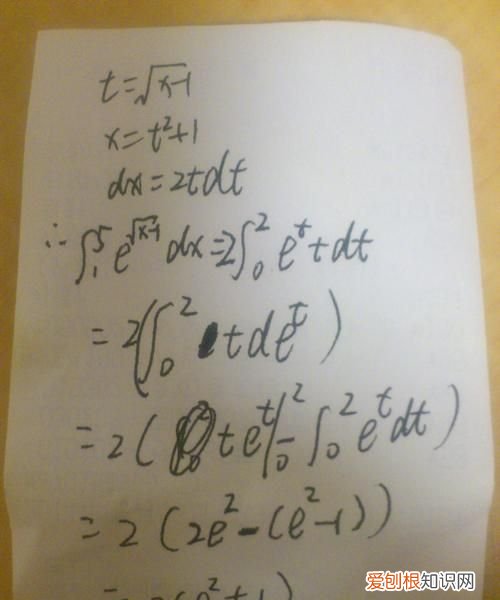 t=√x-1
x=t²+1
dx=2tdt
∴ ∫₁⁵ e^√x-1 dx=2∫₀² eᵗ t dt
=2(∫₀² t deᵗ)
=2( teᵗ|₀² - ∫₀² eᵗdt)
=2(2e²-(e²-1))
爱刨根知识网